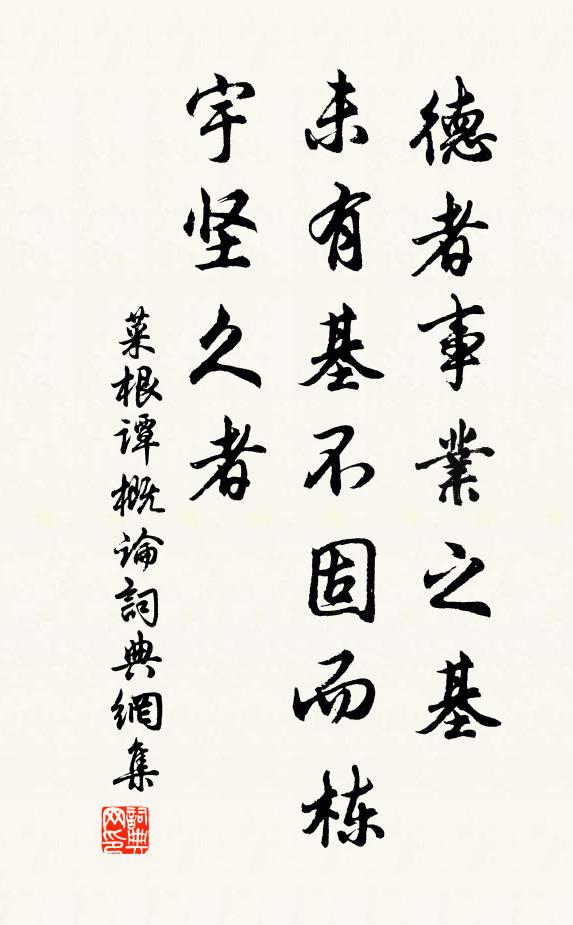 德者事業之基
未有基不固而栋
宇坚久者
菜根谭概論詞典網集
詞典网印